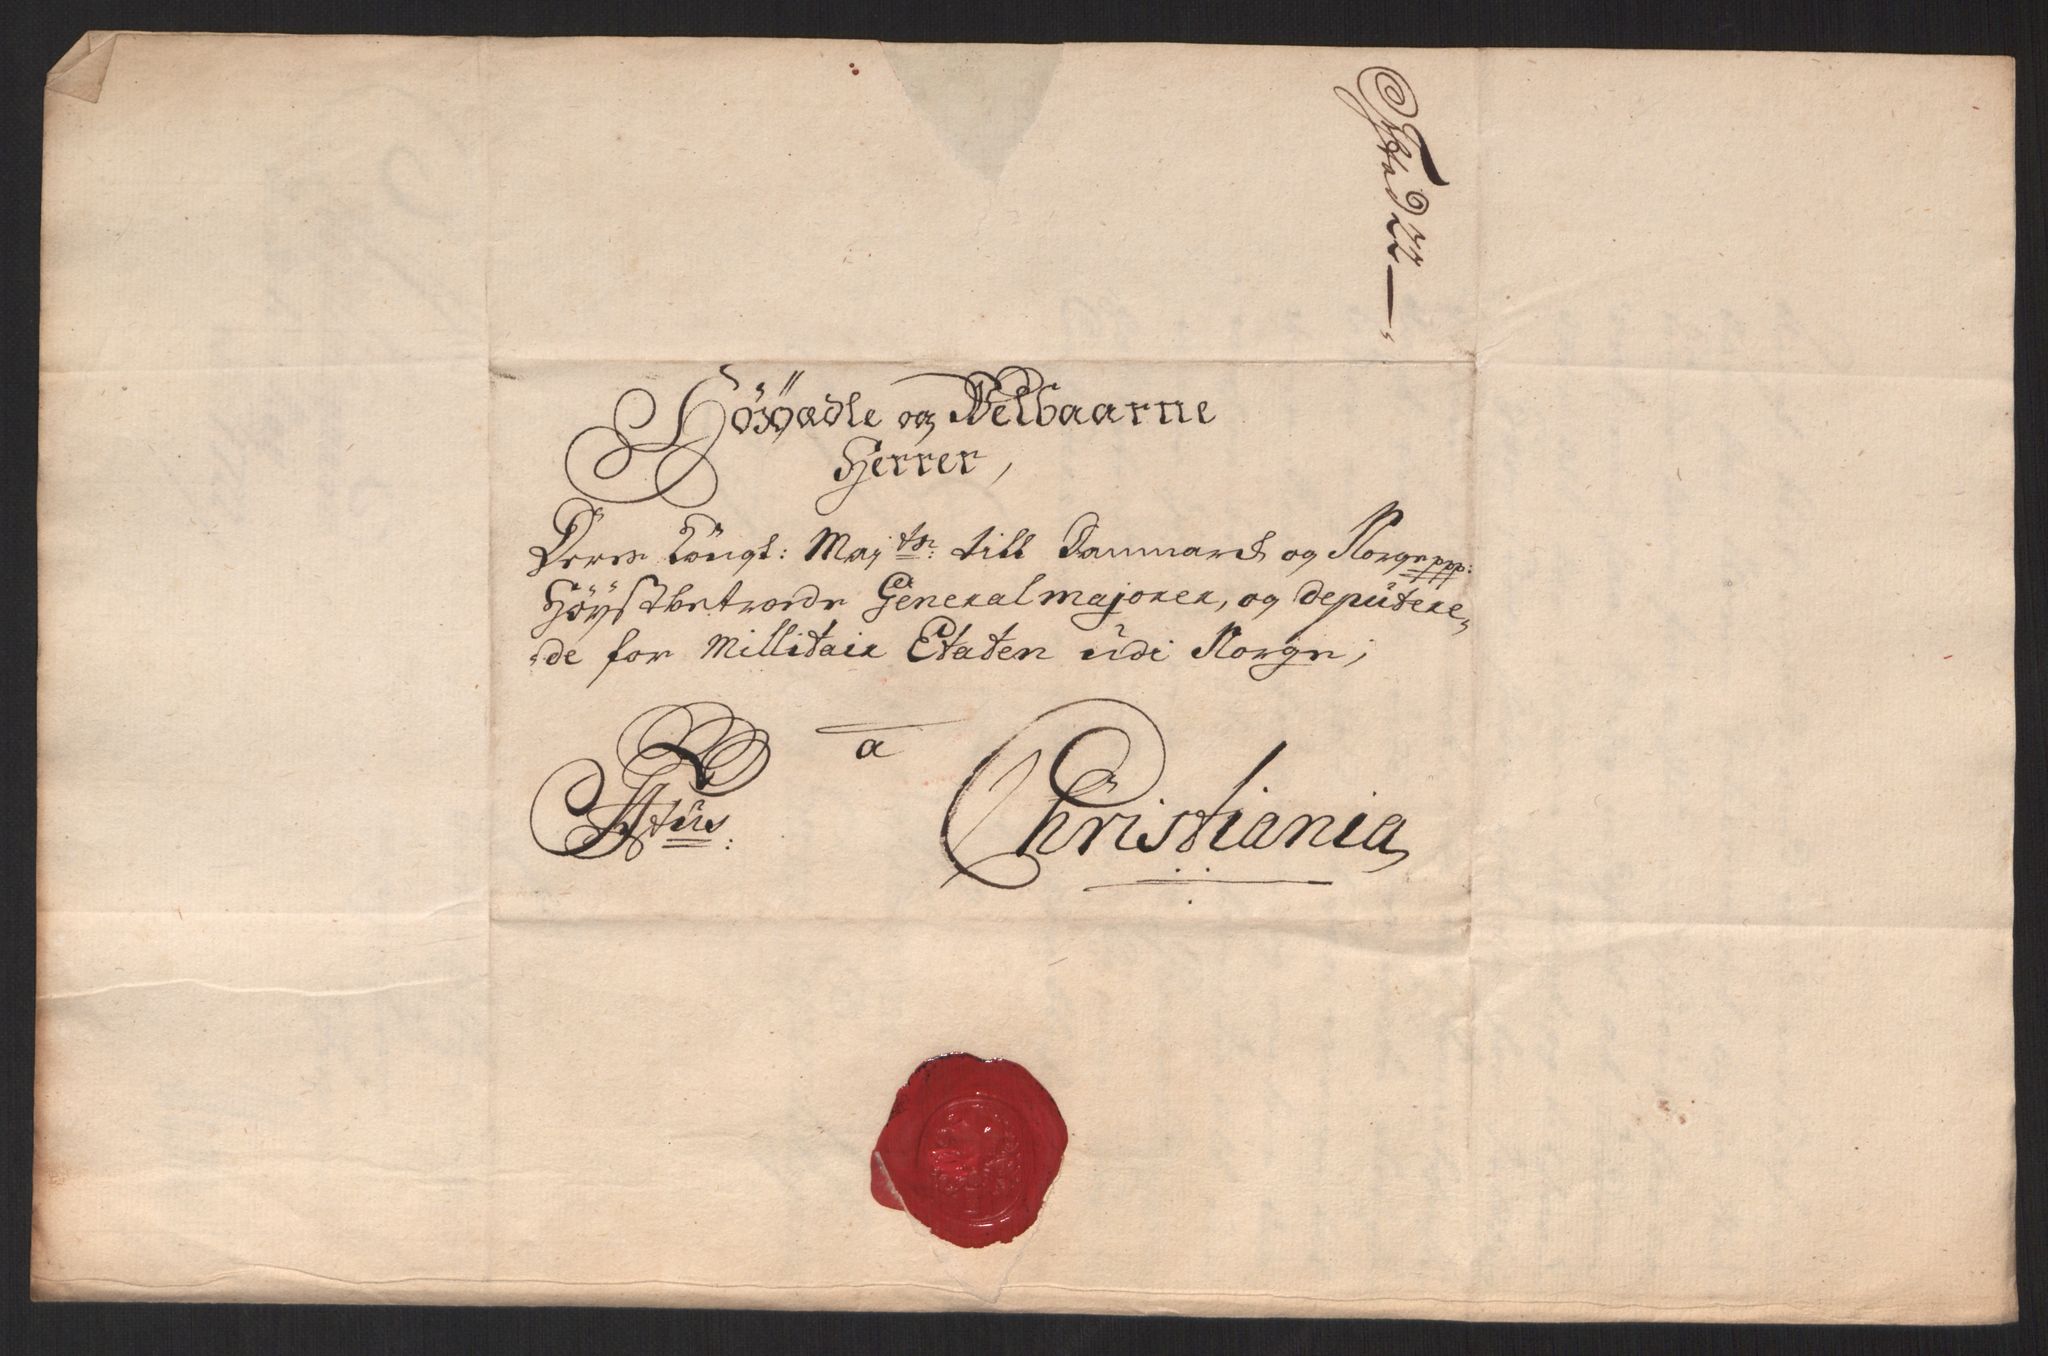 Höyædle og Velbaarne
Herrer,
Deres Kongl: Maj:ts: till Danmarck og Norge ppp:
Höystbetroede Generalmajorer, og deputere„
„de for Millitair Etaten udi Norge,
a
Christiania